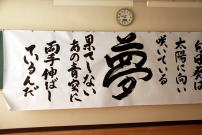 太陽に向い
咲いている
夢
果てしない
あの青空に
両手伸ばし
ているんだ